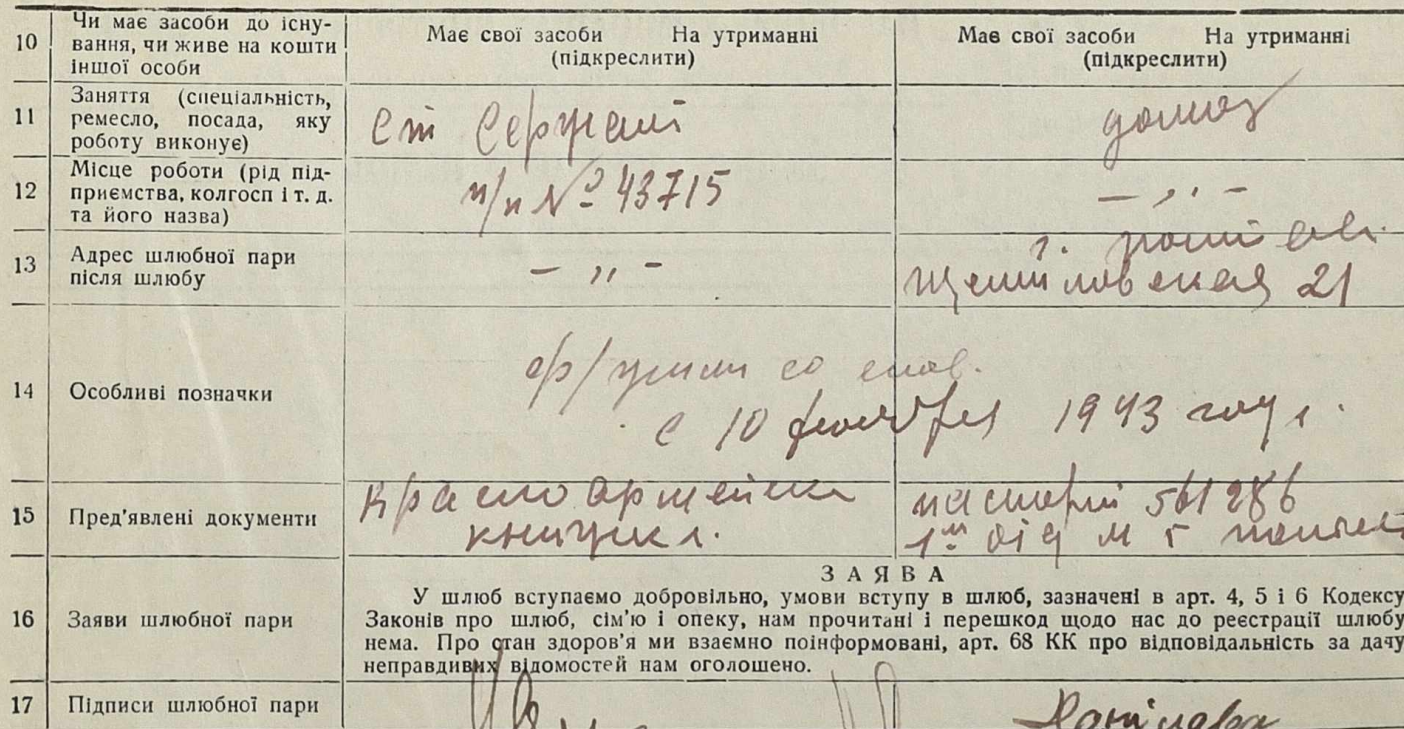 10 Чи має засоби до існу-
вання, чи живе на кошти
іншої особи
Має свої засоби На утриманні
(підкреслити)
Має свої засоби На утриманні
(підкреслити)
11 Заняття (спеціальність,
ремесло, посада, яку
роботу виконує)
Ст Сержант
домхоз
12 Місце роботи (рід під-
приємства, колгосп і т. д.
та його назва)
п/п № 43715
— ,, —
13 Адрес шлюбної пари
після шлюбу
— ,, —
г.
21
14 Особливі позначки
ф/ со
с 10 1943 году.
15 Пред'явлені документи
Красноармейская
книжка.
паспорт 561286
16 Заяви шлюбної пари
ЗАЯВА
У шлюб вступаємо добровільно, умови вступу в шлюб, зазначені в арт. 4, 5 і 6 Кодексу
Законів про шлюб, сім'ю і опеку, нам прочитані і перешкод щодо нас до реєстрації шлюбу
нема. Про стан здоров'я ми взаємно поінформовані, арт. 68 КК про відповідальність за дачу
неправдивих відомостей нам оголошено.
17 Підписи шлюбної пари